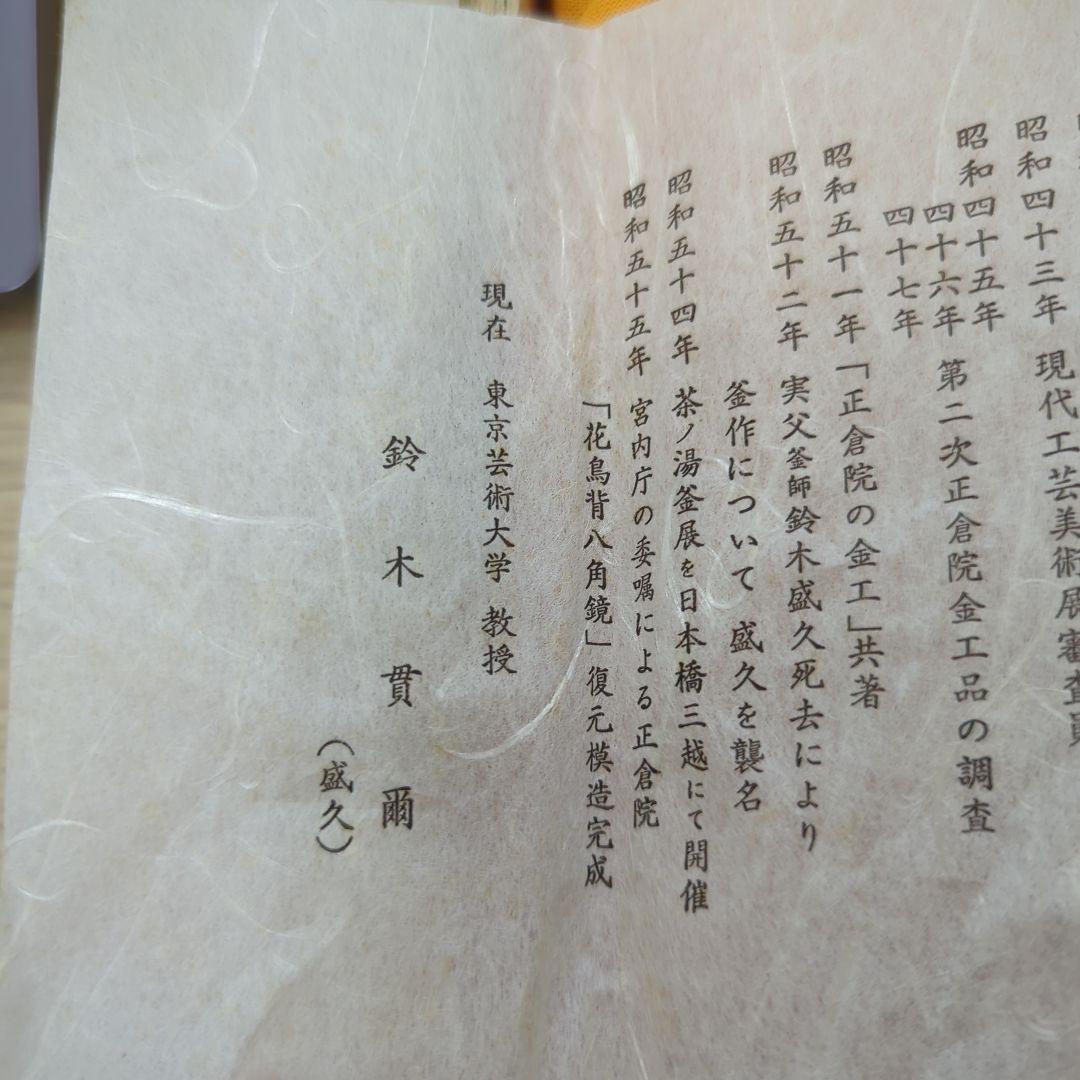 昭和四十三年 現代工芸美術展審査員
昭和四十五年
四十六年 第二次正倉院金工品の調査
四十七年
昭和五十一年 「正倉院の金工」共著
昭和五十二年 実父釜師鈴木盛久死去により
釜作について 盛久を襲名
昭和五十四年 茶ノ湯釜展を日本橋三越にて開催
昭和五十五年 宮内庁の委嘱による正倉院
「花鳥背八角鏡」復元模造完成
現在 東京芸術大学 教授
鈴木貫爾
(盛久)